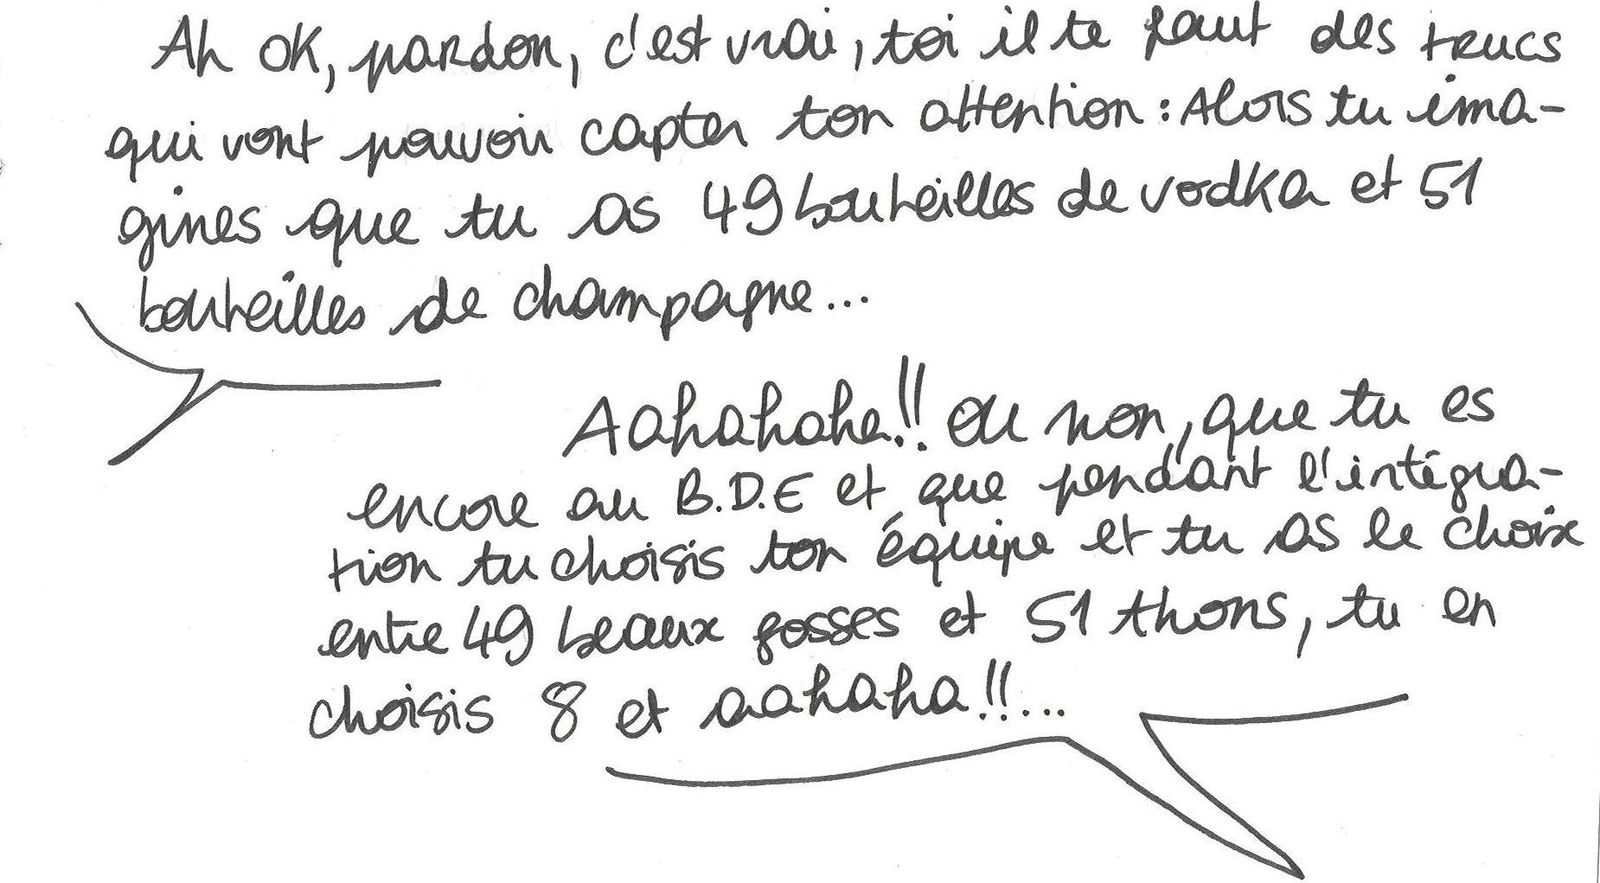 Ah OK, pardon, c'est vrai, toi il te faut des trucs
qui vont pouvoir capter ton attention : Alors tu ima-
gines que tu as 49 bouteilles de vodka et 51
bouteilles de champagne...
Aahahaha!! Ou non, que tu es
encore au B.D.E et que pendant l'intégra-
tion tu choisis ton équipe et tu as le choix
entre 49 beaux gosses et 51 thons, tu en
choisis 8 et aahaha!!...